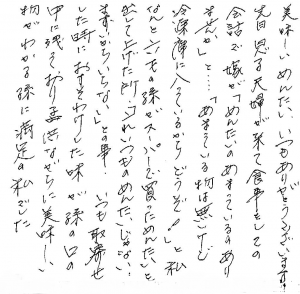 美味しいめんたい、いつもありがとうございます。
先日息子夫婦が来て食事をしての
会話で嫁が「めんたいのあまっているのあり
ませんか」と…「あまっている物は無いけど
冷凍庫に入ってるからどうぞ!」と私
なんと六才の孫がスーパーで買っためんたいを
出して上げた所「これいつものめんたいじゃない…
まずいからいらない」との事! いつも取寄せ
した時におすそわけした味が孫の口の
中に残っており生意気ながらに美味しい
物がわかる孫に満足の私でした